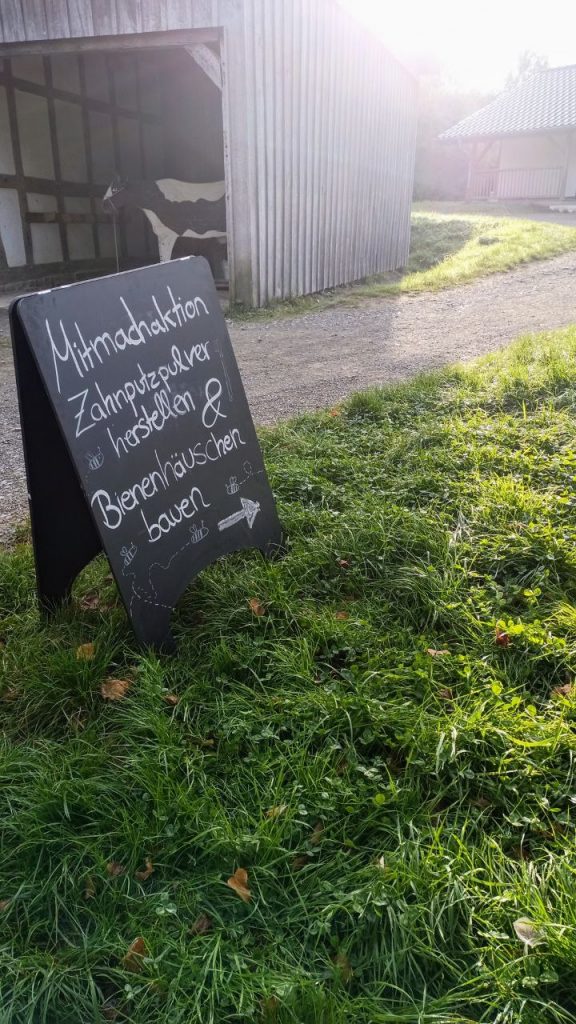 Mitmachaktion
Zahnputzpulver
herstellen &
Bienenhäuschen
bauen